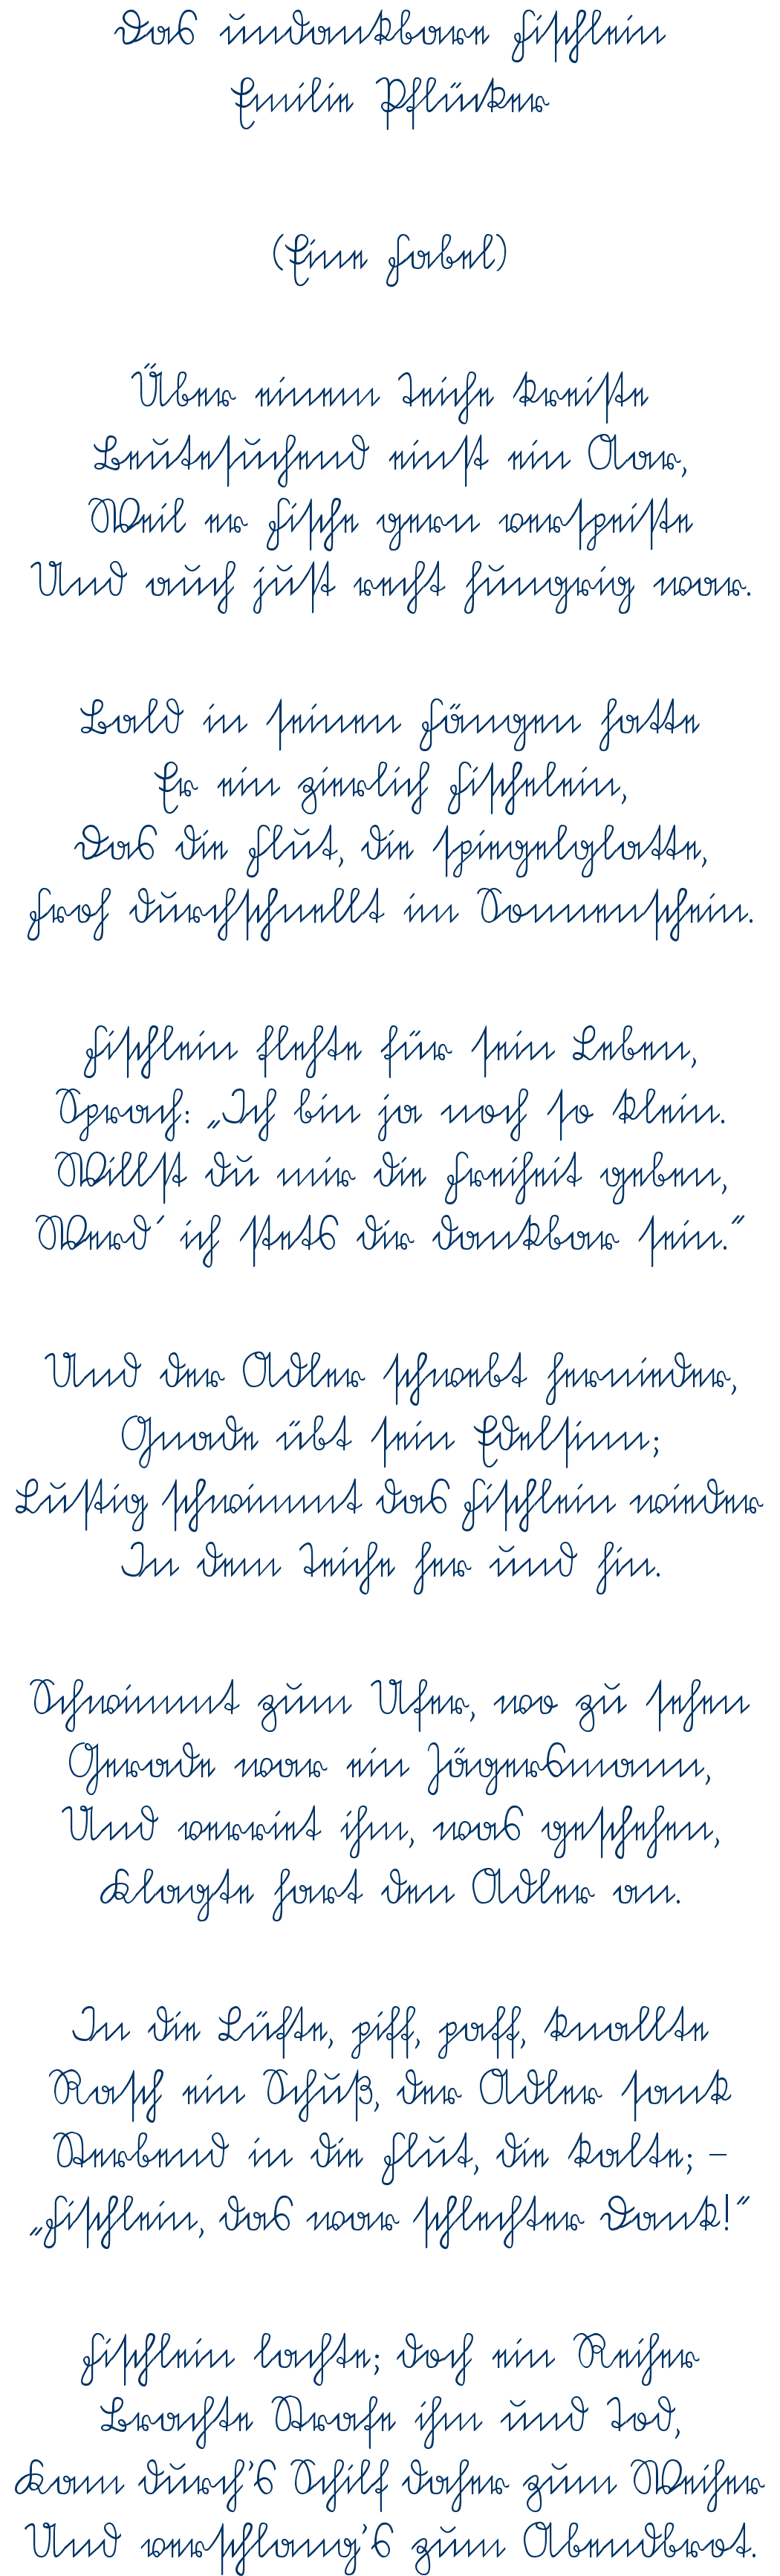 Das undankbare Fischlein
Emilie Pflücker
(Eine Fabel)
Über einem Teiche kreiste
Beutesuchend einst ein Aar,
Weil er Fische gern verspeiste
Und auch just recht hungrig war.
Bald in seinen Fängen hatte
Er ein zierlich Fischelein,
Das die Flut, die spiegelglatte,
Froh durchschnellt im Sonnenschein.
Fischlein flehte für sein Leben,
Sprach: „Ich bin ja noch so klein.
Willst du mir die Freiheit geben,
Werd´ ich stets dir dankbar sein.“
Und der Adler schwebt hernieder,
Gnade übt sein Edelsinn;
Lustig schwimmt das Fischlein wieder
In dem Teiche her und hin.
Schwimmt zum Ufer, wo zu sehen
Gerade war ein Jägersmann,
Und verriet ihm, was geschehen,
Klagte hart den Adler an.
In die Lüfte, piff, paff, knallte
Rasch ein Schuß, der Adler sank
Sterbend in die Flut, die kalte; –
„Fischlein, das war schlechter Dank!“
Fischlein lachte; doch ein Reiher
Brachte Strafe ihm und Tod,
Kam durch's Schilf daher zum Weiher
Und verschlang's zum Abendbrot.